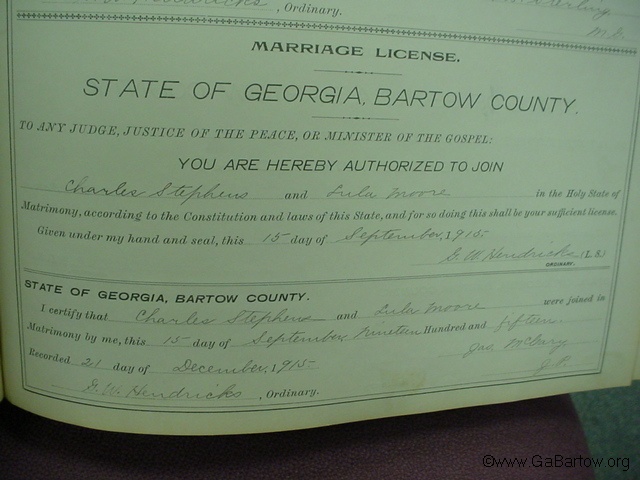 Hendricks, Ordinary.
M.D.
MARRIAGE LICENSE.
STATE OF GEORGIA, BARTOW COUNTY.
TO ANY JUDGE, JUSTICE OF THE PEACE, OR MINISTER OF THE GOSPEL:
YOU ARE HEREBY AUTHORIZED TO JOIN
Charles Stephens and Lula Moore in the Holy State of
Matrimony, according to the Constitution and laws of this State, and for so doing this shall be your sufficient license.
Given under my hand and seal, this 15 day of September, 1915
G. W. Hendricks (L. S.)
ORDINARY.
STATE OF GEORGIA, BARTOW COUNTY.
I certify that Charles Stephens and Lula Moore were joined in
Matrimony by me, this 15 day of September Nineteen Hundred and fifteen
Jas
J.P.
Recorded 21 day of December, 1915
G. W. Hendricks, Ordinary.
©www.GaBartow.org